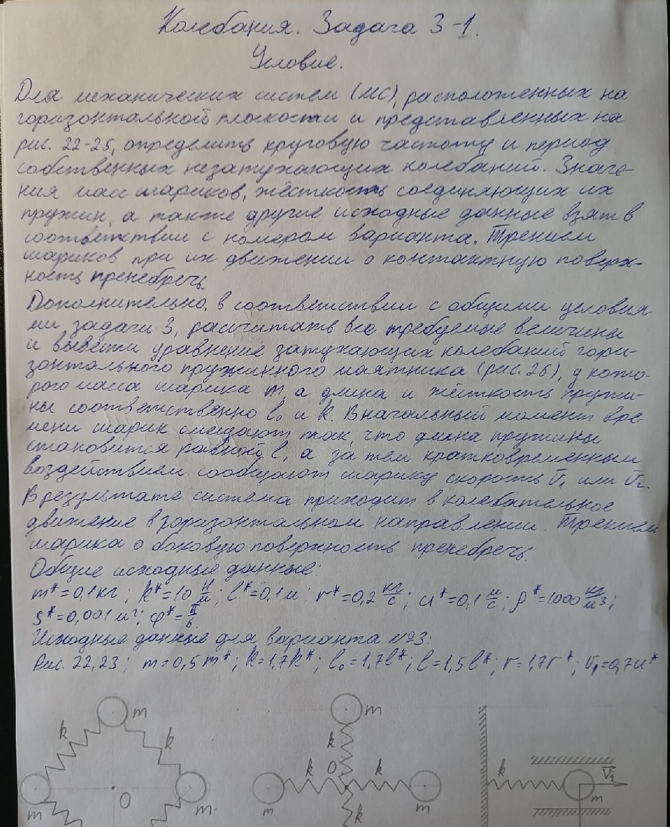 Колебания. Задача 3-1.
Условие.
Для механических систем (МС), расположенных на
горизонтальной плоскости и представленных на
рис. 22-25, определить круговую частоту и период
собственных незатухающих колебаний. Значе-
ния масс шариков, жёсткость соединяющих их
пружин, а также другие исходные данные взять в
соответствии с номером варианта. Трением
шариков при их движении о контактную поверх-
ность пренебречь.
Дополнительно, в соответствии с общими условия-
ми задачи 3, рассчитать все требуемые величины
и вывести уравнение затухающих колебаний гори-
зонтального пружинного маятника (рис. 26), у кото-
рого масса шарика m, а длина и жёсткость пружи-
ны соответственно l₀ и k. В начальный момент вре-
мени шарик смещают так, что длина пружины
становится равной l, а затем кратковременным
воздействием сообщают шарику скорость v̄₁ или v̄₂.
В результате система приходит в колебательное
движение в горизонтальном направлении. Трением
шарика о боковую поверхность пренебречь.
Общие исходные данные:
m*=0,1 кг; k*=10 Н/м; l*=0,1 м; r*=0,2 кг/с; u*=0,1 м/с; ρ*=1000 кг/м³;
S*=0,001 м²; φ*=π/6.
Исходные данные для варианта №23:
Рис. 22,23; m=0,5m*; k=1,7k*; l₀=1,7l*; l=1,5l*; r=1,7r*; v₁=0,7u*
m
k
k
m
O
m
m
k
k
O
k
m
m
k
k
v̄₁
m